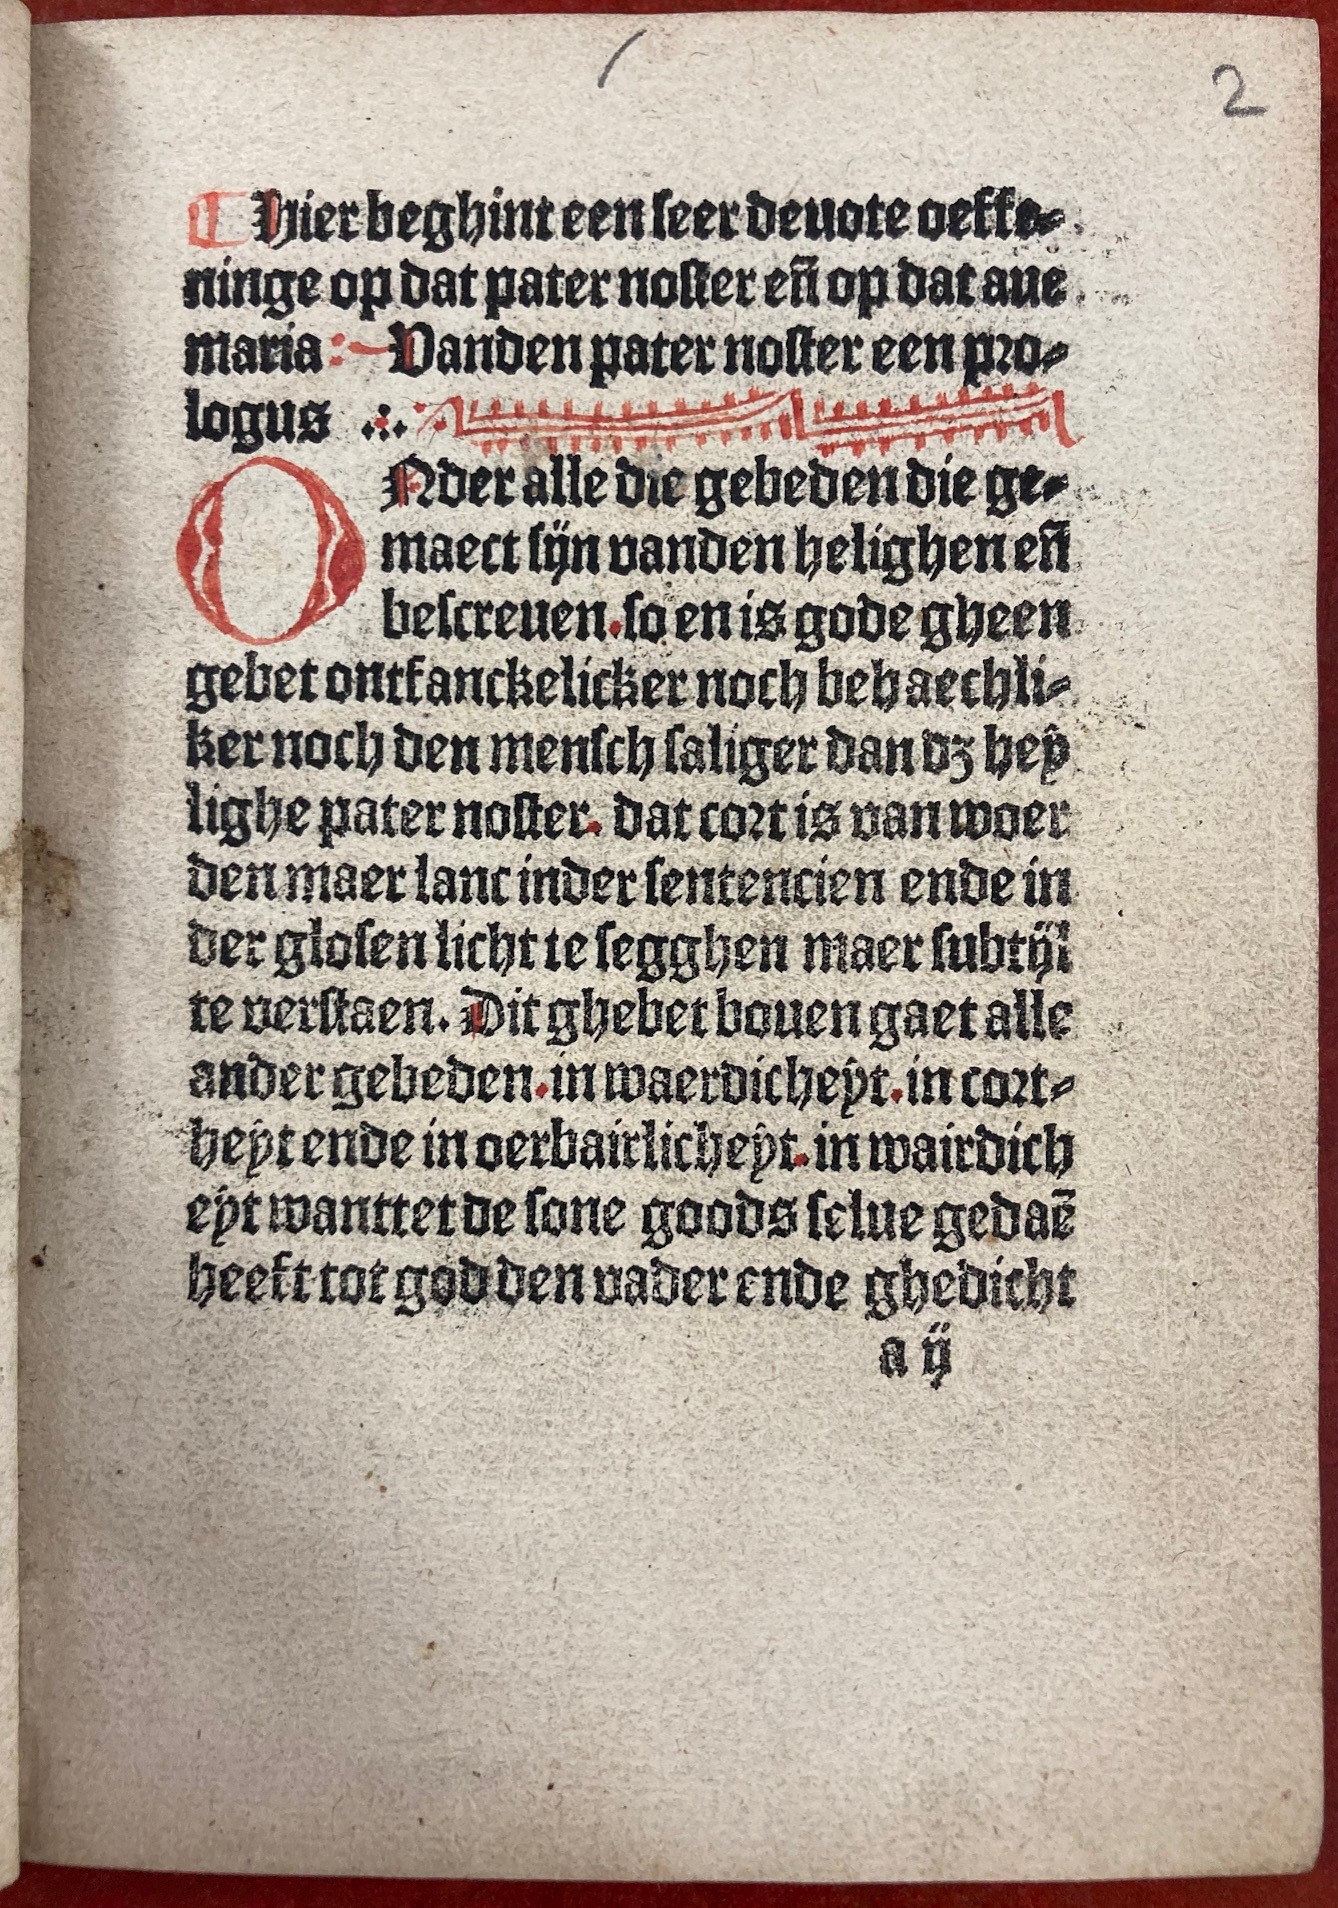 2
¶ Hier beghint een seer deuote oeffe⸗
ninge op dat pater noster eñ op dat aue
maria :- Uanden pater noster een pro⸗
logus .:.
ONder alle die gebeden die ge⸗
maect sijn vanden helighen eñ
bescreuen. so en is gode gheen
gebet ontfanckelicker noch behaechli⸗
ker noch den mensch saliger dan dꝫ hey
lighe pater noster. dat cort is van woer
den maer lanc inder sentencien ende in
der glosen licht te segghen maer subtijl
te verstaen. Dit ghebet bouen gaet alle
ander gebeden. in waerdicheyt. in cort⸗
heyt ende in oerbairlicheyt. in wairdich
eyt wanttet de sone goods selue gedaē
heeft tot god den vader ende ghedicht
a ij